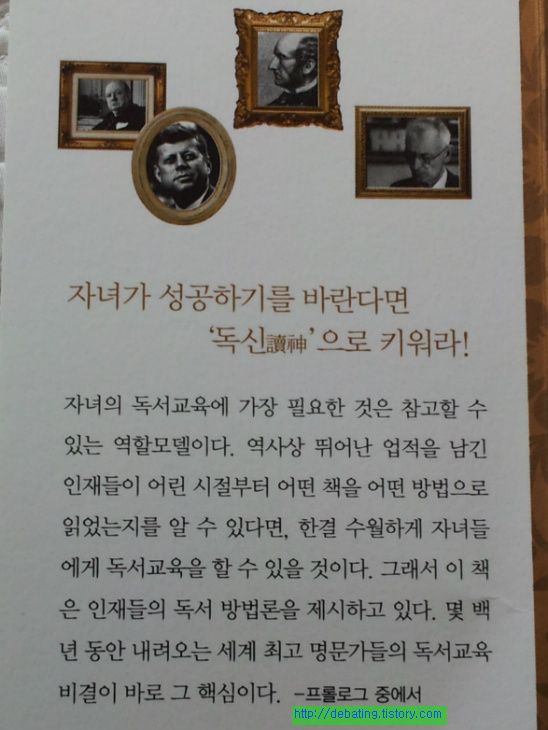 자녀가 성공하기를 바란다면
‘독신讀神’으로 키워라!
자녀의 독서교육에 가장 필요한 것은 참고할 수
있는 역할모델이다. 역사상 뛰어난 업적을 남긴
인재들이 어린 시절부터 어떤 책을 어떤 방법으로
읽었는지를 알 수 있다면, 한결 수월하게 자녀들
에게 독서교육을 할 수 있을 것이다. 그래서 이 책
은 인재들의 독서 방법론을 제시하고 있다. 몇 백
년 동안 내려오는 세계 최고 명문가들의 독서교육
비결이 바로 그 핵심이다. –프롤로그 중에서
http://debating.tistory.com